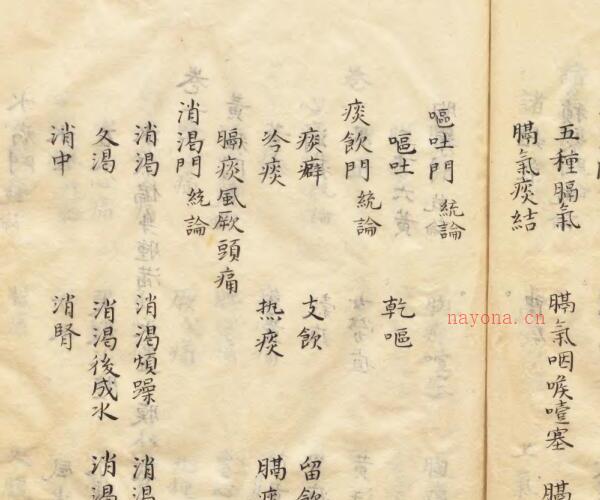 五種膈氣 膈氣咽喉噎塞 膈
膈氣痰結
嘔吐門 統論
嘔吐 乾嘔
痰飲門 統論
痰癖 支飲 留飲
冷痰 热痰 膈痰
膈痰風厥頭痛
消渴門 統論
消渴 消渴煩躁 消渴
久渴 消渴後成水 消渴
消中 消腎
nayona.cn